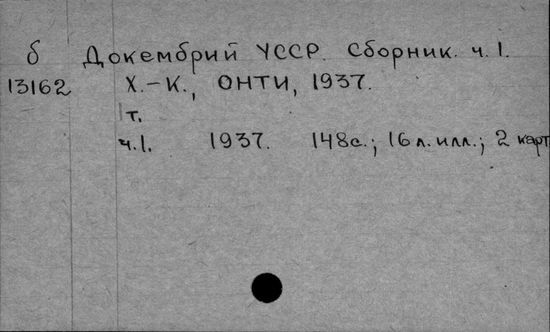 б Докембрий УССР. Сборник. ч.1.
13162 Х.-К., ОНТИ, 1937.
1т.
ч.1. 1937. 148с.; 16л. илл.; 2 карт